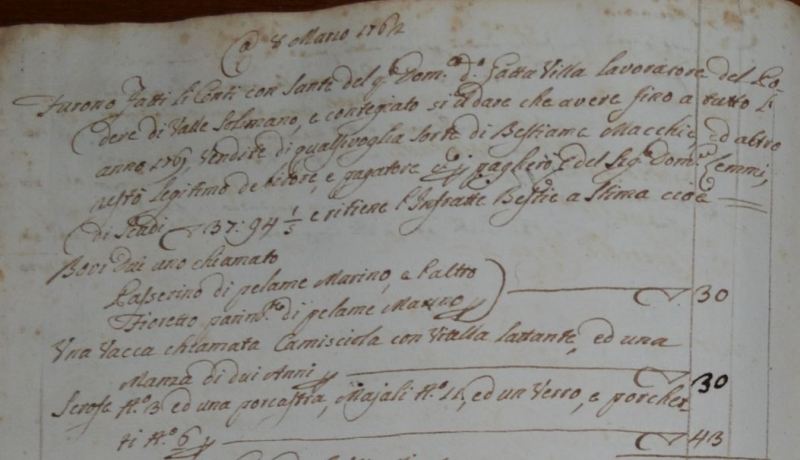 A 8 Marzo 1762
Furono Fatti li Conti con Sante del q.m Dom.co d.o Gatta Villa Lavoratore del Po-
dere di Valle Solimano, e contegiato si il dare che avere fino a tutto l
anno 1761, Vendite di qualsivoglia sorte di Bestiame Macchie, ed altro
restò legitimo debitore, e pagatore del Sig.r Dom.co Lemmi,
di Scudi 37:94 1/5 e ritiene l'Infratte Bestie a Stima cioè
Bovi Dui uno chiamato
Passerino di pelame Marino, e l'altro
Fioretto parim.te di pelame Marino 30
Una Vacca chiamata Camisciola con Vitalla lattante, ed una
Manza di dui Anni 30
Scrofe N.o 3 ed una porcastra, Majali N.o ed un Verro, e porchet
ti N.o 6 43